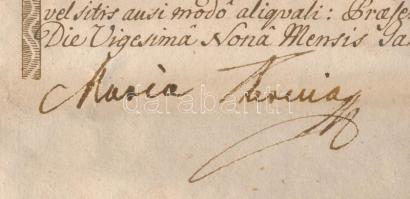 vel sitis ausi modô aliquali: Præse
Die Vigesimâ Nonâ Mensis Ja
Maria Theresia
darabanth